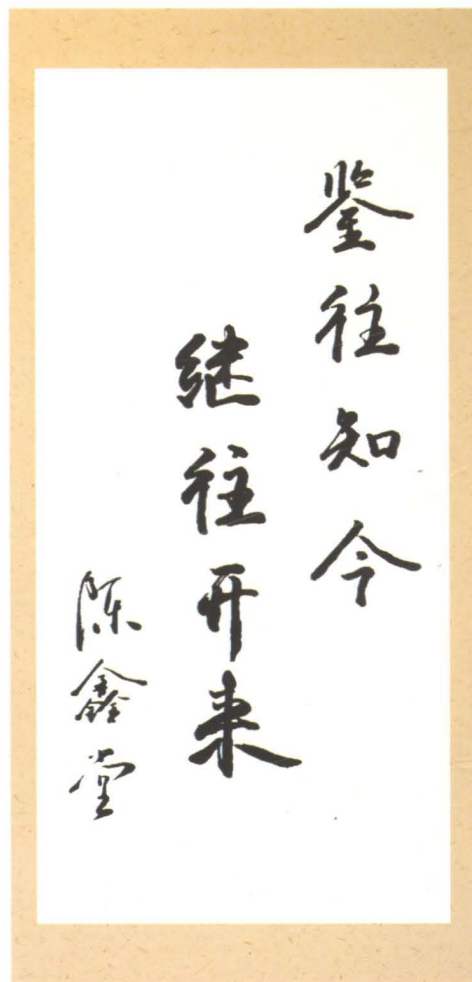 鉴往知今
继往开来
陈鑫堂